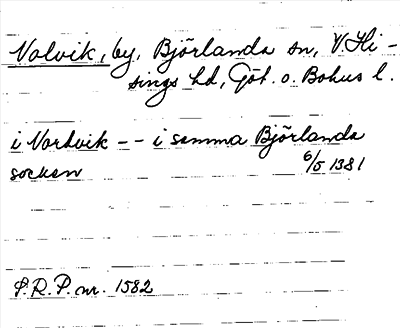 Nolvik, by, Björlanda sn, V. Hi-
sings hd, Göt. o. Bohus l.
i Nordvik -- i samma Björlanda
socken 6/5 1381
S.R.P. nr. 1582